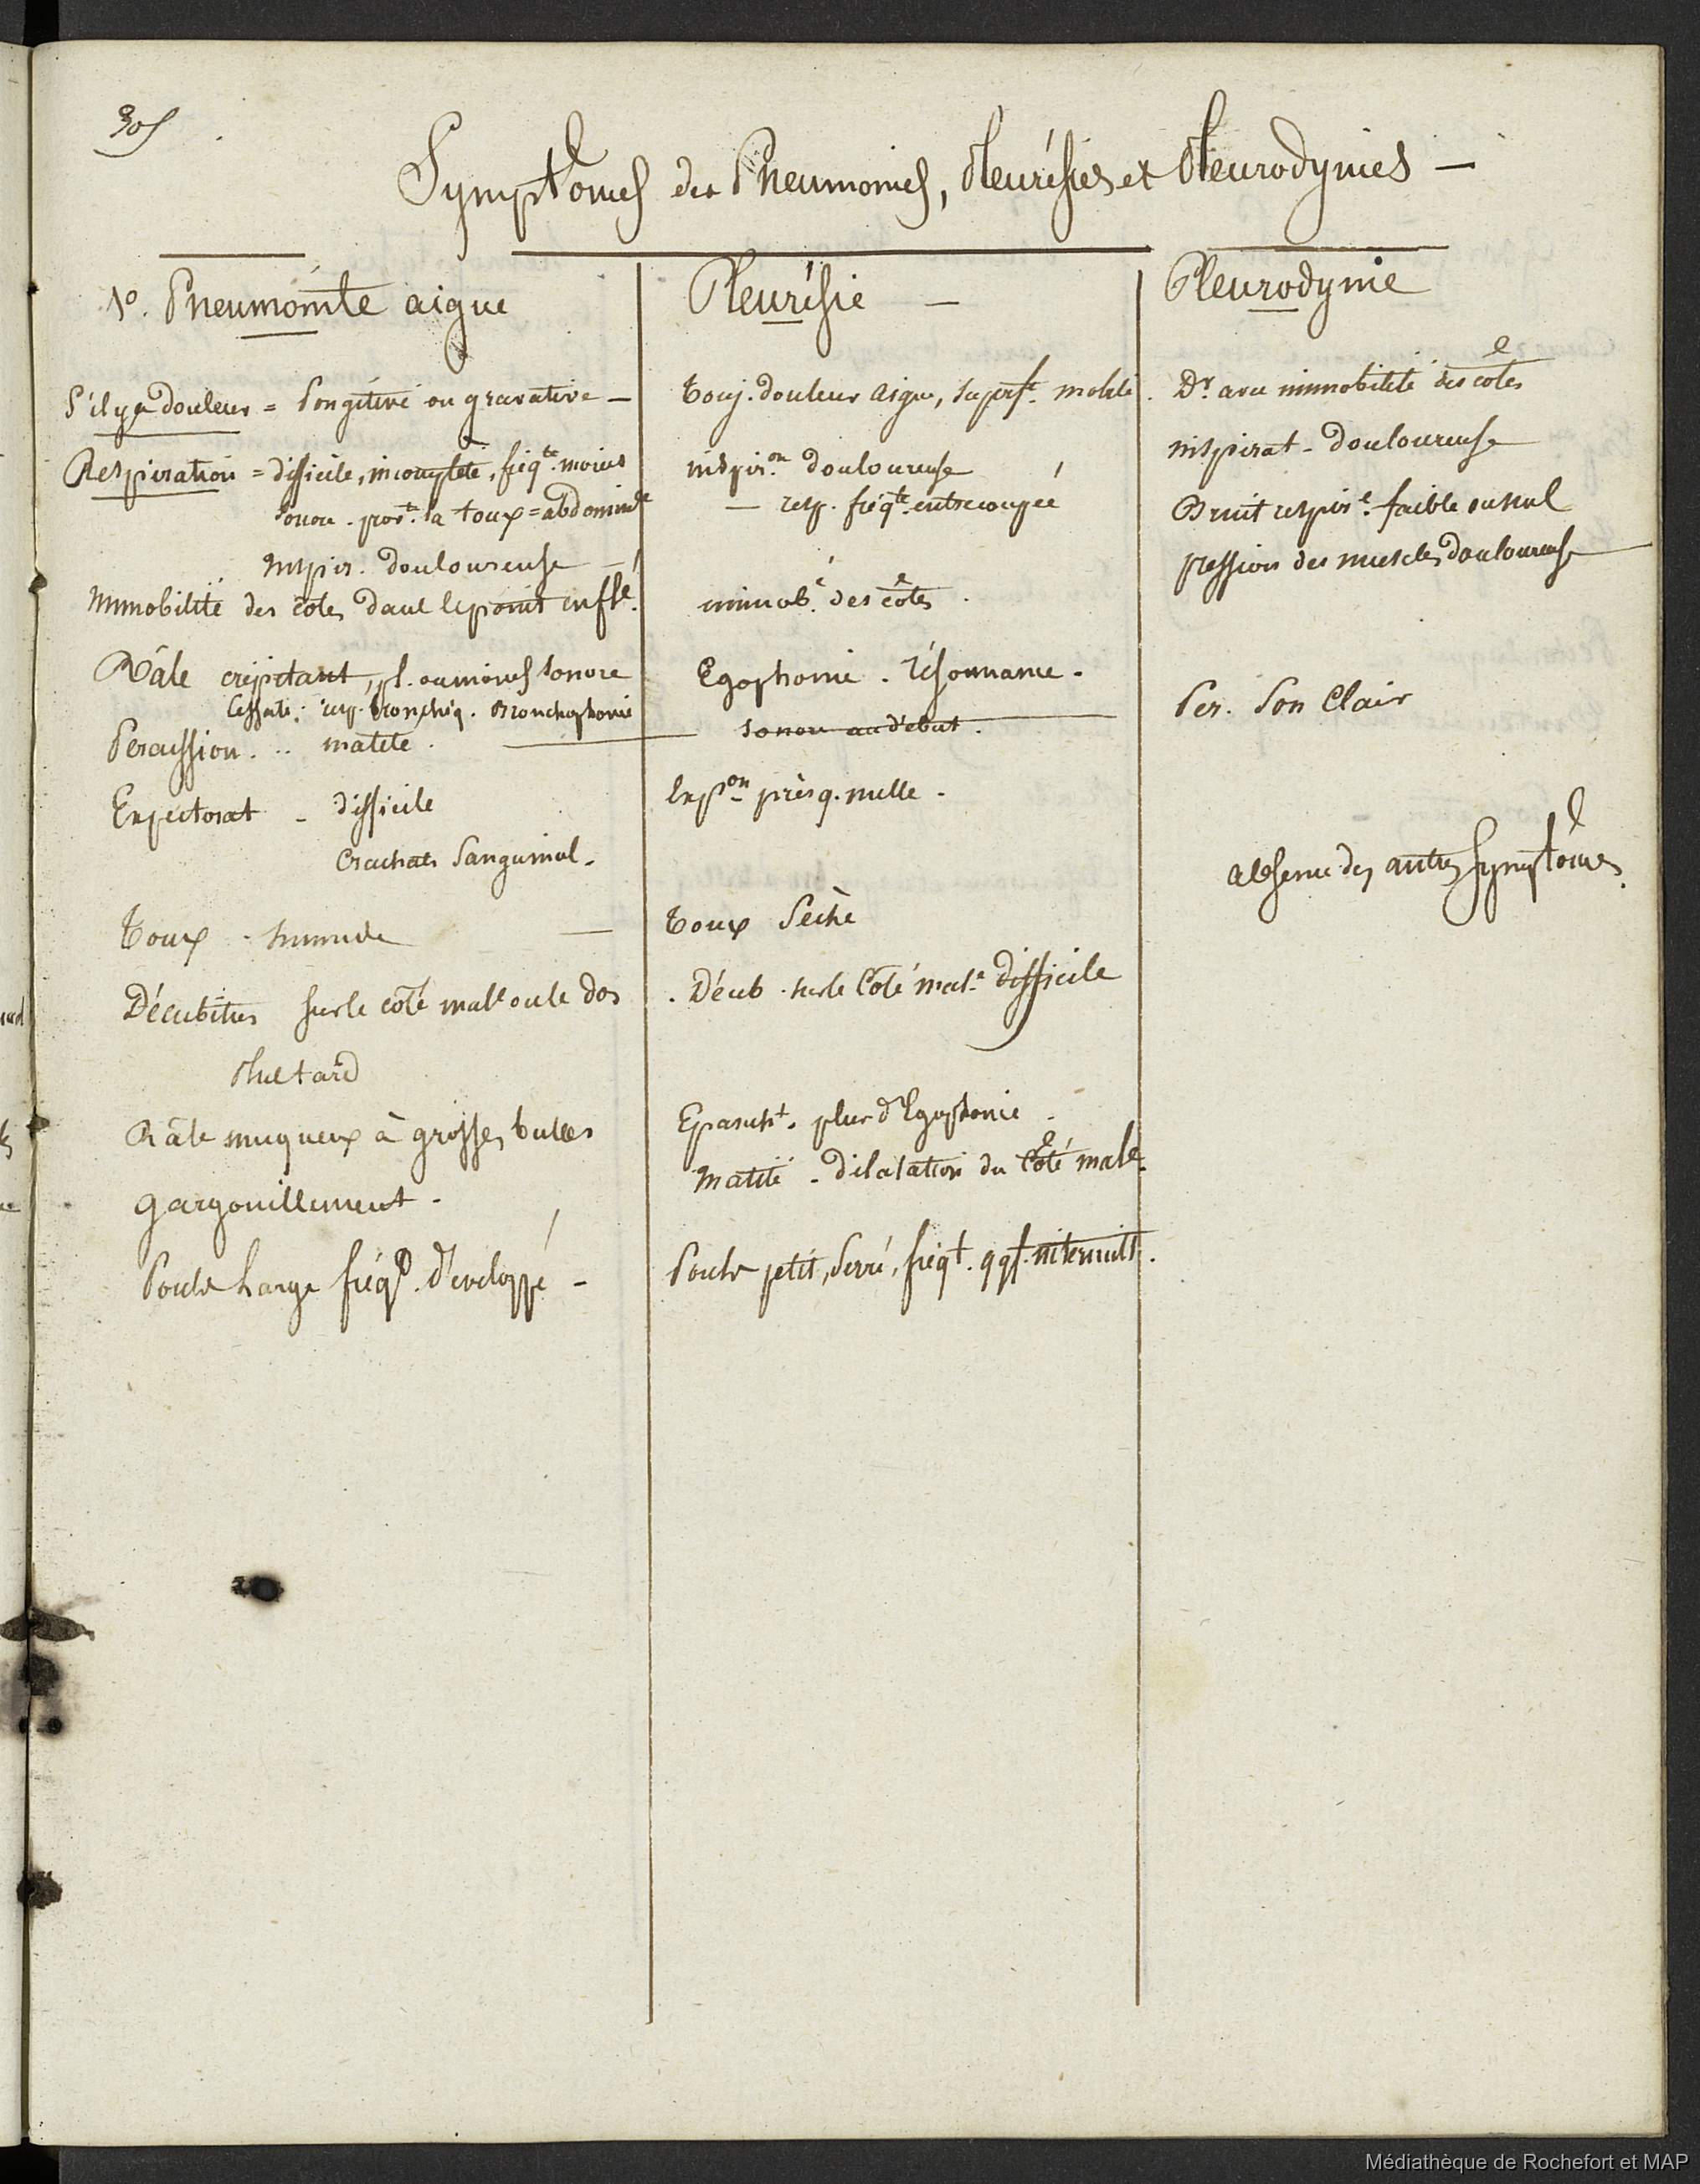 305
Symptomes des Pneumonies, Pleurésies et Pleurodynies —
1º. Pneumonite aigue
S'il y a douleur = Pongitive ou gravative —
Respiration = difficile, incomplète, fréqte. moins
sonore. la toux = abdominle
Inspir. douloureuse —
Immobilité des côtes dans le point enflé.
Râle crépitant, pl. ou moins sonore
resp. bronchiq. Bronchophonie
Percussion ... matité.
Expectorat - difficile
Crachats Sanguinol.
Toux - humide —
Décubitus sur le côté male ou le dos
Plus tard
Râle muqueux à grosses bulles
gargouillement -
Pouls large fréqt. développé -
Pleurésie —
Touj. douleur aigue, superfle. mobile.
inspiron. douloureuse
— resp. fréqte. entrecoupée
immob.é des côtes.
Egophonie. résonnance.
sonore au début.
Expon. presq. nulle.
Toux Sèche
. Décub. sur le Côté male. difficile
Epancht. plus d'Egophonie.
Matité - dilatation du Côté male.
Pouls petit, Serré, fréqt. qqf. intermitt.
Pleurodynie
Dr. avec immobilité des côtes
inspirat - douloureuse
Bruit respire. faible ou nul
pression des muscles douloureuse
Per. Son Clair
absence des autres Symptômes.
Médiathèque de Rochefort et MAP